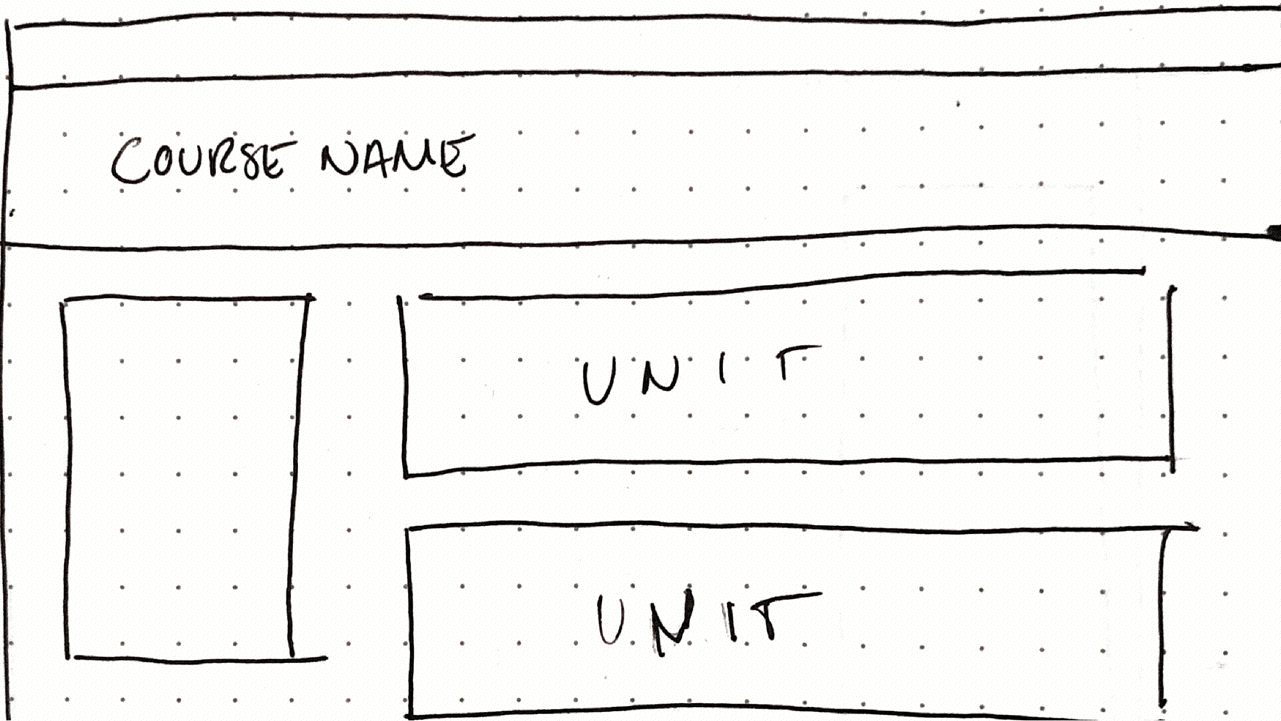 COURSE NAME
UNIT
UNIT